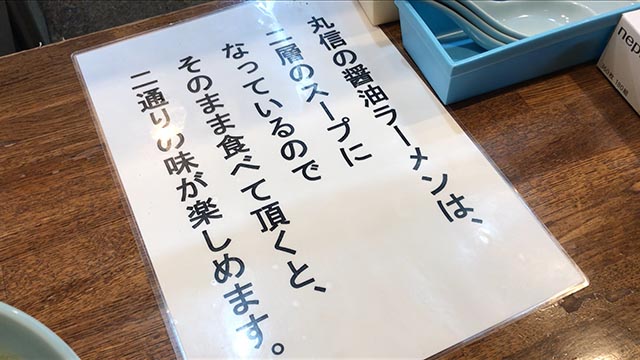 丸信の醤油ラーメンは、
二層のスープに
なっているので
そのまま食べて頂くと、
二通りの味が楽しめます。
nep